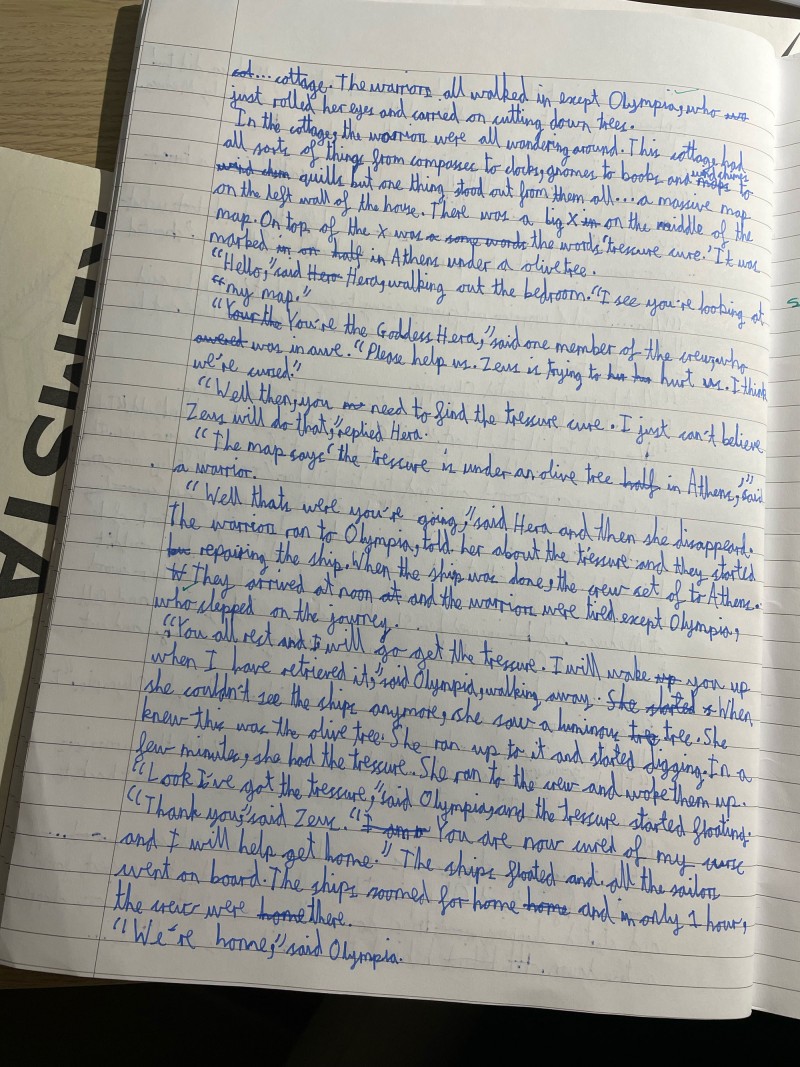 cot... cottage. The warriors all walked in except Olympia, who was
just rolled her eyes and carried on cutting down trees.
In the cottage, the warriors were all wandering around. This cottage had
all sorts of things from compasses to clocks, gnomes to books and maps wind chimes to
weird chim quills but one thing stood out from them all... a massive map
on the left wall of the house. There was a big X in on the middle of the
map. On top of the X was a some words the words 'tressure cure.' It was
marked in on half in Athens under a olive tree.
"Hello," said Hera Hera, walking out the bedroom. "I see you're looking at
"my map."
"Your the You're the Goddess Hera," said one member of the crew, who
owered was in awe. "Please help us. Zeus is trying to hur hur hurt us. I think
we're cursed."
"Well then, you need to find the tressure cure. I just can't believe
Zeus will do that," replied Hera.
"The map says the tressure is under an olive tree half in Athens," said
a warrior.
"Well thats were you're going," said Hera and then she disappeard.
The warriors ran to Olympia, told her about the tressure and they started
repairing the ship. When the ship was done, the crew set of to Athens.
They arrived at noon at and the warriors were tired except Olympia,
who slepped on the journey.
"You all rest and I will go get the tressure. I will wake up you up
when I have retrieved it," said Olympia, walking away. She started s When
she couldn't see the ships anymore, she saw a luminous tree tree. She
knew this was the olive tree. She ran up to it and started digging. In a
few minutes, she had the tressure. She ran to the crew and woke them up.
"Look I've got the tressure," said Olympia, and the tressure started floating.
"Thank you," said Zeus. "I am You are now cured of my curse
and I will help get home." The ships floated and all the sailors
went on board. The ships zoomed for home home and in only 1 hour,
the crews were home there.
"We're home," said Olympia.